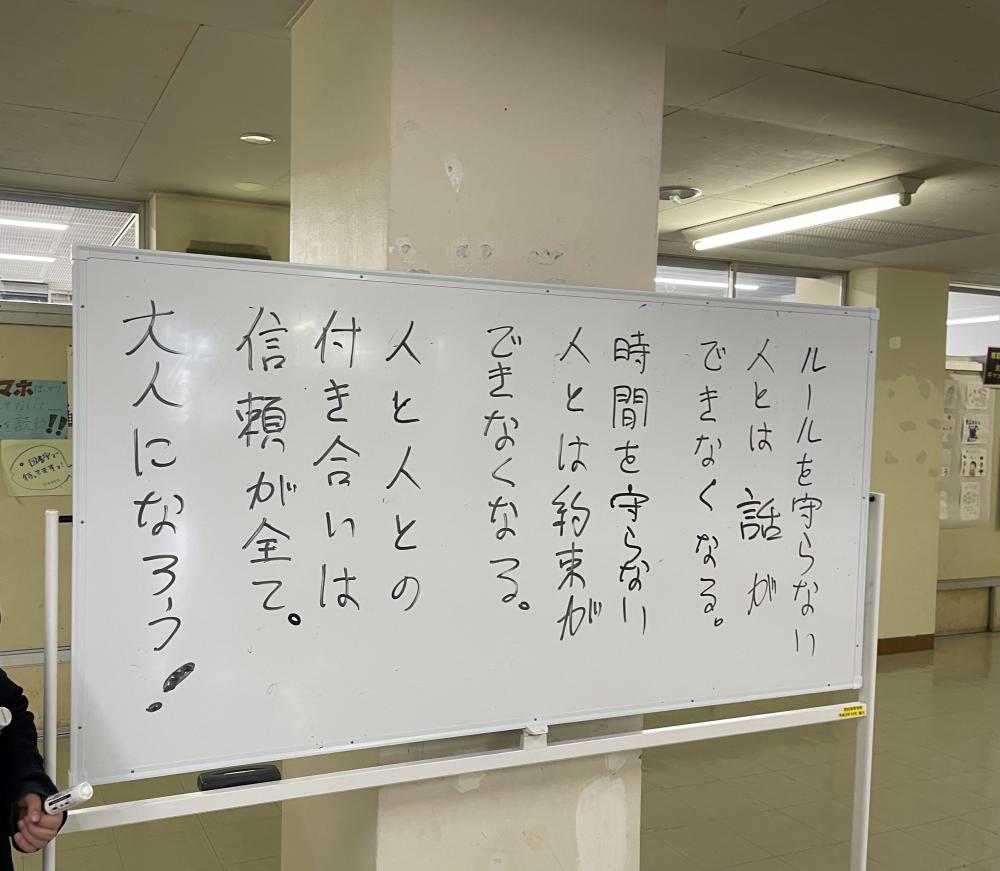 ルールを守らない
人とは話が
できなくなる。
時間を守らない
人とは約束が
できなくなる。
人と人との
付き合いは
信頼が全て。
大人になろう!